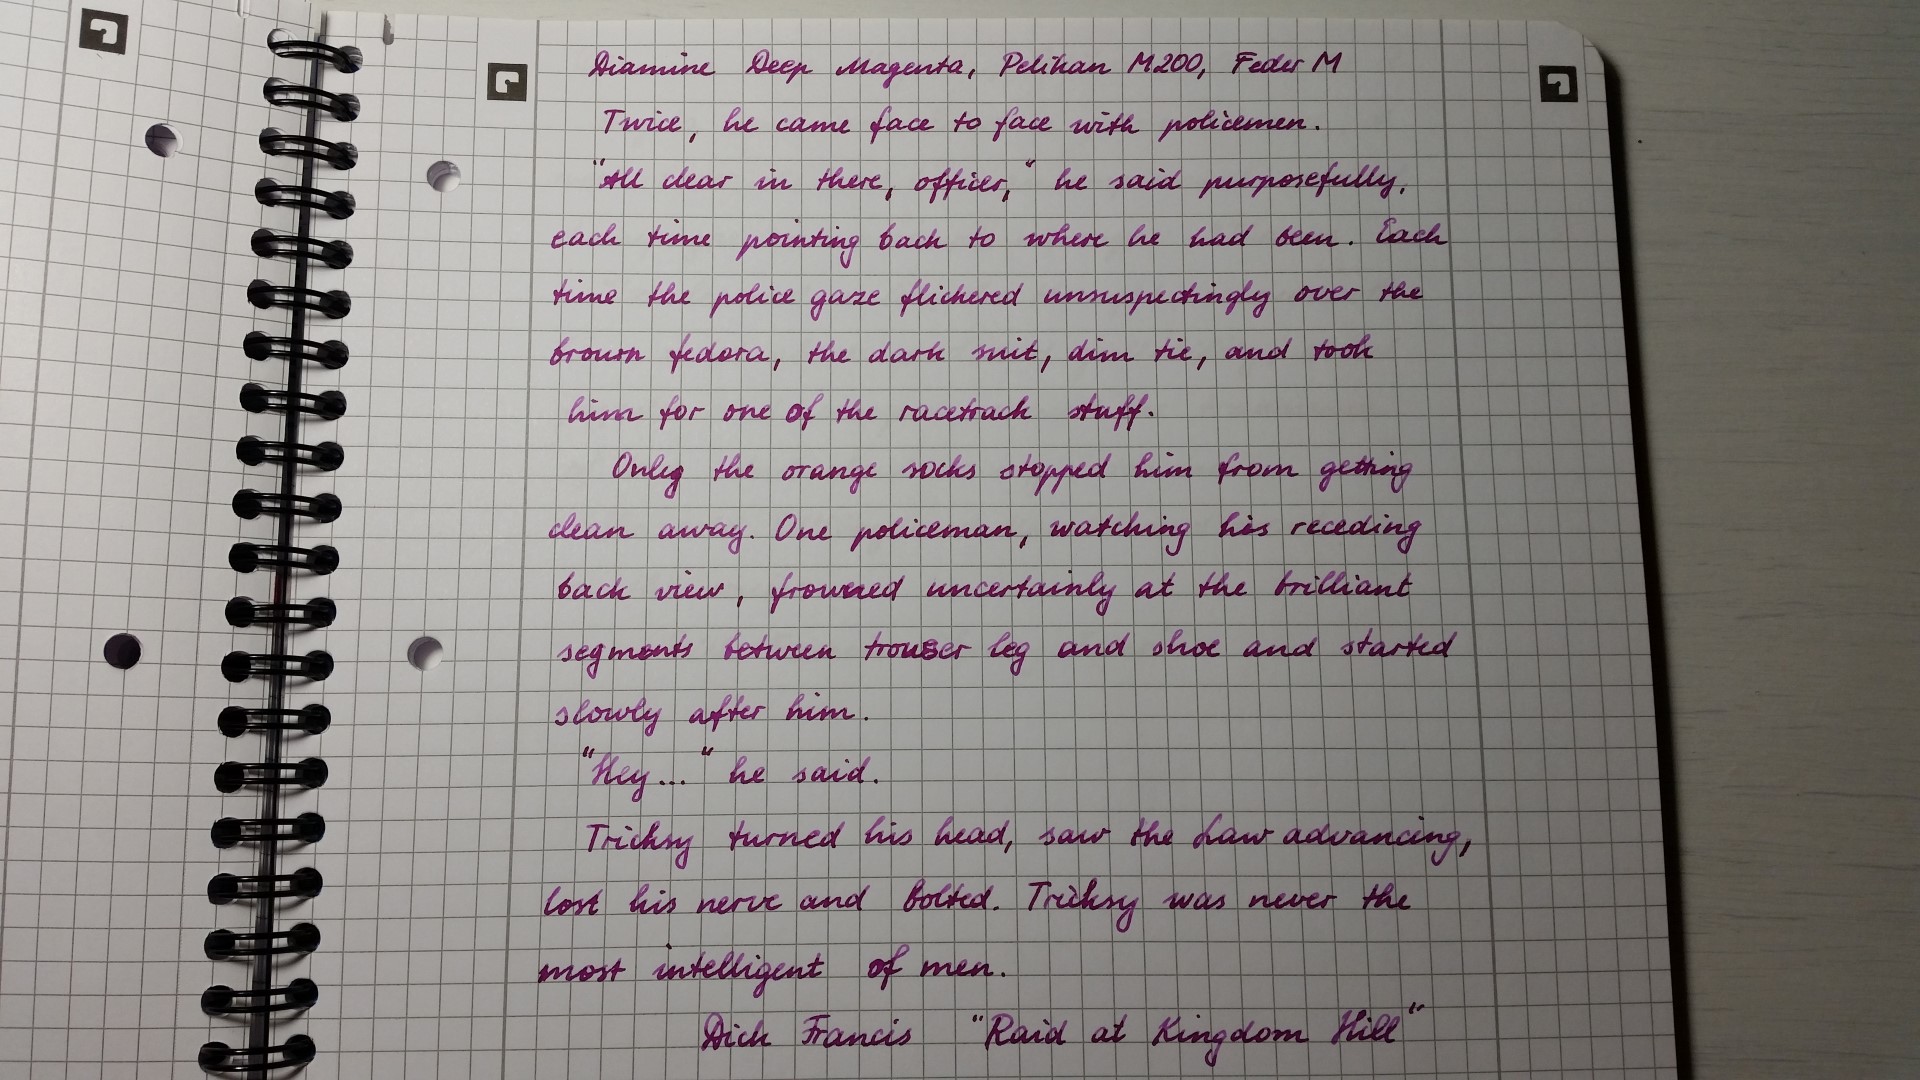 Diamine Deep Magenta, Pelikan M200, Feder M
Twice, he came face to face with policemen.
"All clear in there, officer," he said purposefully,
each time pointing back to where he had been. Each
time the police gaze flickered unsuspectingly over the
brown fedora, the dark suit, dim tie, and took
him for one of the racetrack stuff.
Only the orange socks stopped him from getting
clean away. One policeman, watching his receding
back view, frowned uncertainly at the brilliant
segments between trouser leg and shoe and started
slowly after him.
"Hey..." he said.
Tricksy turned his head, saw the Law advancing,
lost his nerve and bolted. Tricksy was never the
most intelligent of men.
Dick Francis "Raid at Kingdom Hill"